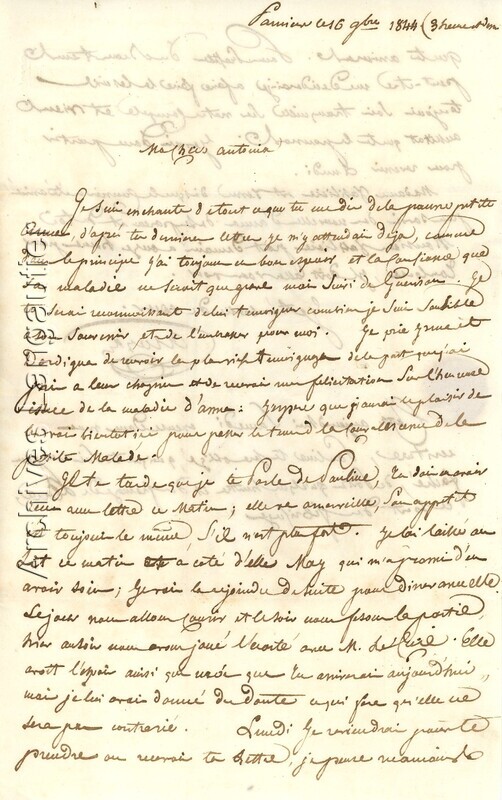 Pamiers le 16 9bre 1844 (3 heures
Ma Chère antonia
Je suis enchanté de tout ce que tu me dis de la pauvre petite
d'après ta dernière lettre je m'y attendais déjà, comme
le principe j'ai toujours eu bon espoir, et la Confiance que
la maladie ne serait que grave mais suivi de Guérison. Je
te serai reconnaissant de lui témoigner combien je suis sensible
à son souvenir et de l'embrasser pour moi. Je prie et
de recevoir le plus vif témoignage de la part que j'ai
pris a leur chagrin et de recevoir ma félicitation Sur l'heureuse
issue de la maladie d'anna: J'espère que j'aurai le plaisir de
bientôt ici pour passer le temps de la Convalescence de la
petite Malade.
Il te tarde que je te Parle de Pauline, Tu dois avoir
reçu une lettre ce Matin; elle va a merveille, Son appétit
est toujours le même, S'il n'est plus fort. Je l'ai laissée au
Lit ce matin à côté d'elle May qui m'a promi d'en
avoir soin; Je vais la rejoindre de suite pour diner avec elle.
Le jour nous allons Courir et le soir nous fesons la partie,
hier au soir nous avons joué l'écarté avec M. le Curé. Elle
avait l'espoir ainsi que moi que Tu arriverais aujourd'hui,
mais je lui avais donné du Doute ce qui fera qu'elle ne
sera pas contrarié. Lundi Je reviendrai pour te
prendre ou recevoir ta Lettre, je pense néanmoins
Archives de famille